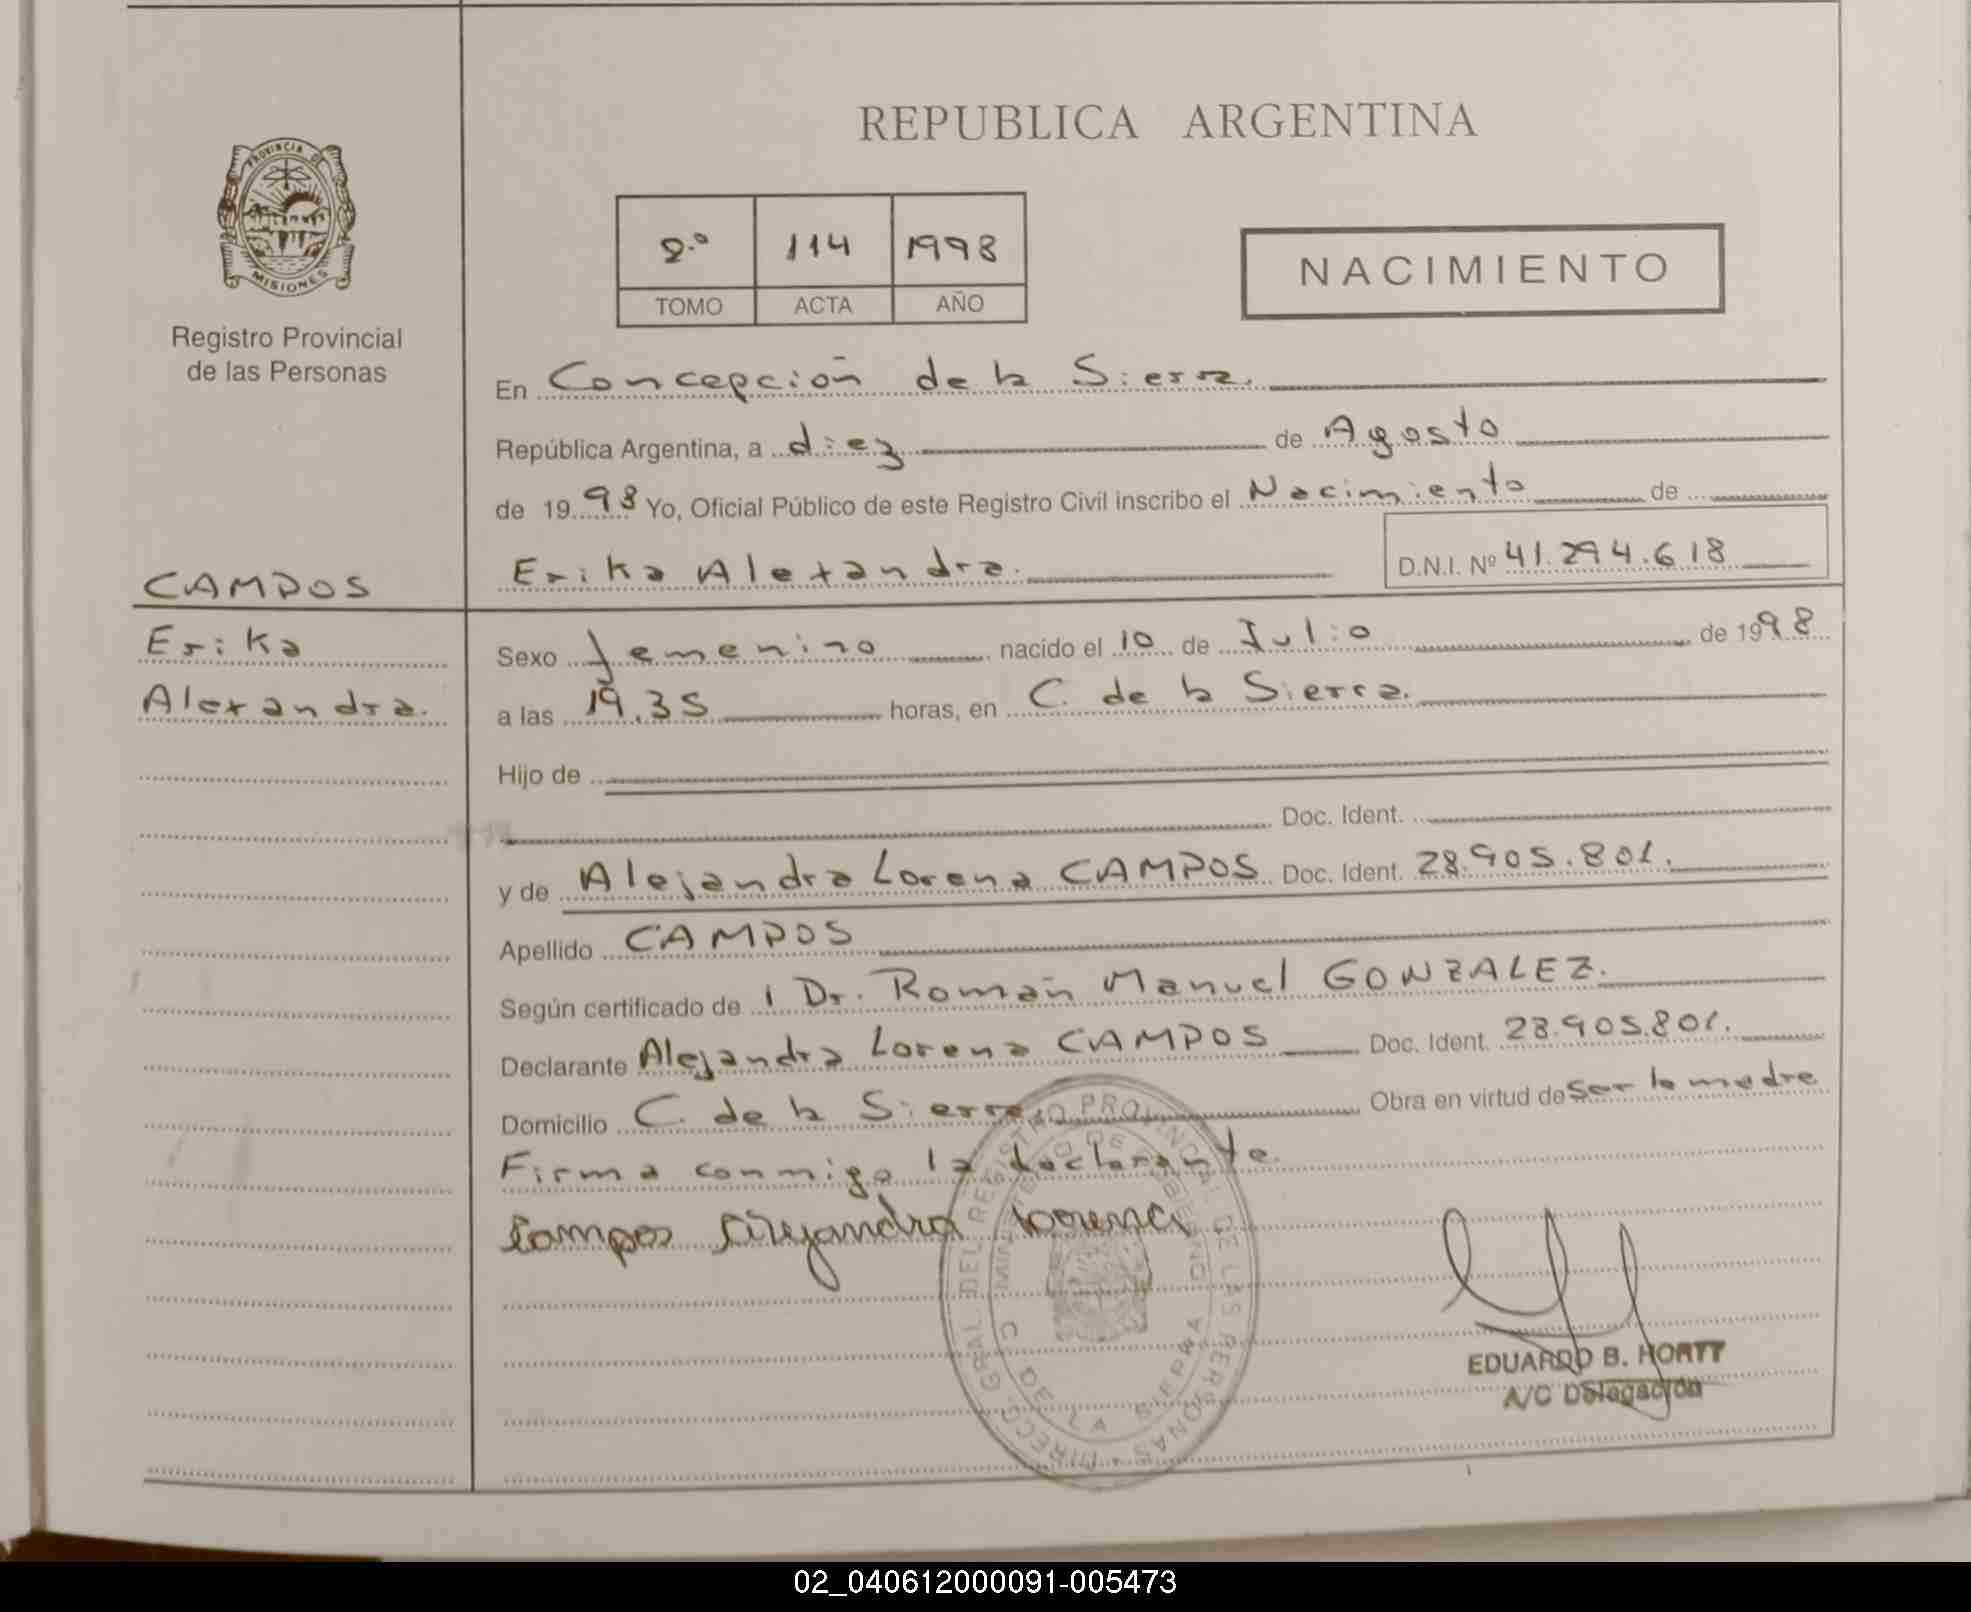 REPUBLICA ARGENTINA
PROVINCIA DE
MISIONES
Registro Provincial
de las Personas
2.º 114 1998
TOMO ACTA AÑO
NACIMIENTO
En Concepción de la Sierra.
República Argentina, a diez de Agosto
de 1998 Yo, Oficial Público de este Registro Civil inscribo el Nacimiento de
Erika Alexandra. D.N.I. Nº 41.294.618
CAMPOS
Erika
Alexandra.
Sexo femenino nacido el 10 de Julio de 1998
a las 19.35 horas, en C. de la Sierra.
Hijo de
Doc. Ident.
y de Alejandra Lorena CAMPOS Doc. Ident. 28.905.801.
Apellido CAMPOS
Según certificado de Dr. Román Manuel GONZALEZ.
Declarante Alejandra Lorena CAMPOS Doc. Ident. 28.905.801.
Domicilio C. de la Sierra Obra en virtud de Ser la madre
Firma conmigo la declarante.
Campos Alejandra Lorena
DIRECC. GRAL. DEL REGISTRO PROVINCIAL DE LAS PERSONAS
MINISTERIO DE GOBIERNO
C. DE LA SIERRA
EDUARDO B. HORTT
A/C Delegación
02_040612000091-005473